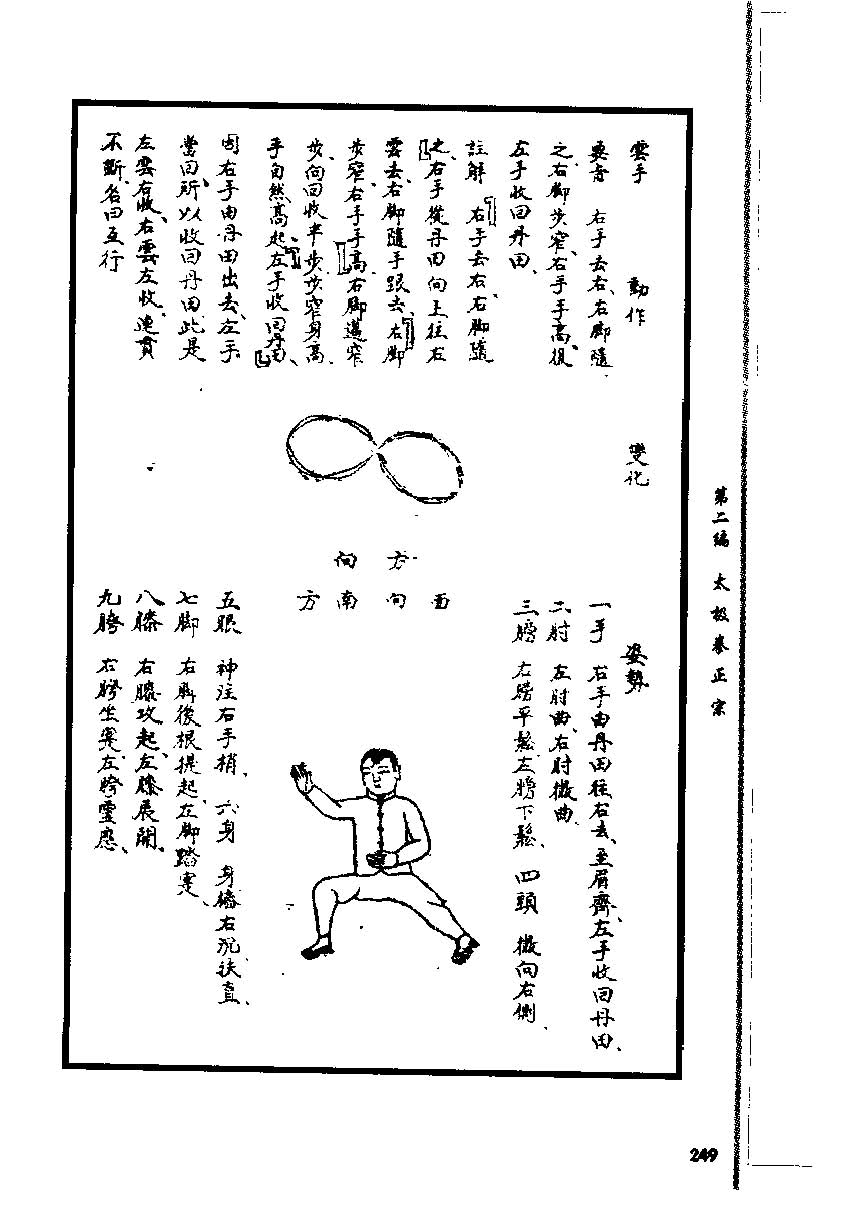 第二編 太極拳正宗
雲手 動作 變化 姿勢
要言 右手去右、右脚隨
之、右脚步窄、右手手高、後
左手收回丹田、
註解 「右手去右、右脚隨
之」、右手從丹田向上往右
雲去、右脚隨手跟去、「右脚
步窄、右手手高」、右脚邁窄
步、向回收半步、步窄身高、
手自然高起、「左手收回丹田」、
因右手由丹田出去、左手
當回、所以收回丹田、此是
左雲右收、右雲左收、連貫
不斷、名曰互行
方向
面向南方
一手 右手由丹田往右去、至眉齊、左手收回丹田、
二肘 左肘曲、右肘微曲、
三膀 右膀平鬆、左膀下鬆、 四頭 微向右側、
五眼 神注右手梢、 六身 身樁右沉、扶直、
七脚 右脚後根提起、左脚踏実、
八膝 右膝攻起、左膝展開、
九胯 右胯坐実、左胯靈應、
249